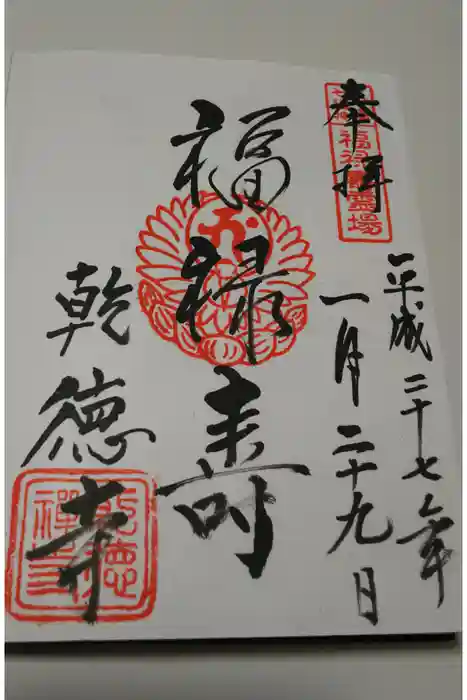 奉拝
福禄寿霊場
平成二十七年
一月二十九日
福禄寿
乾徳寺